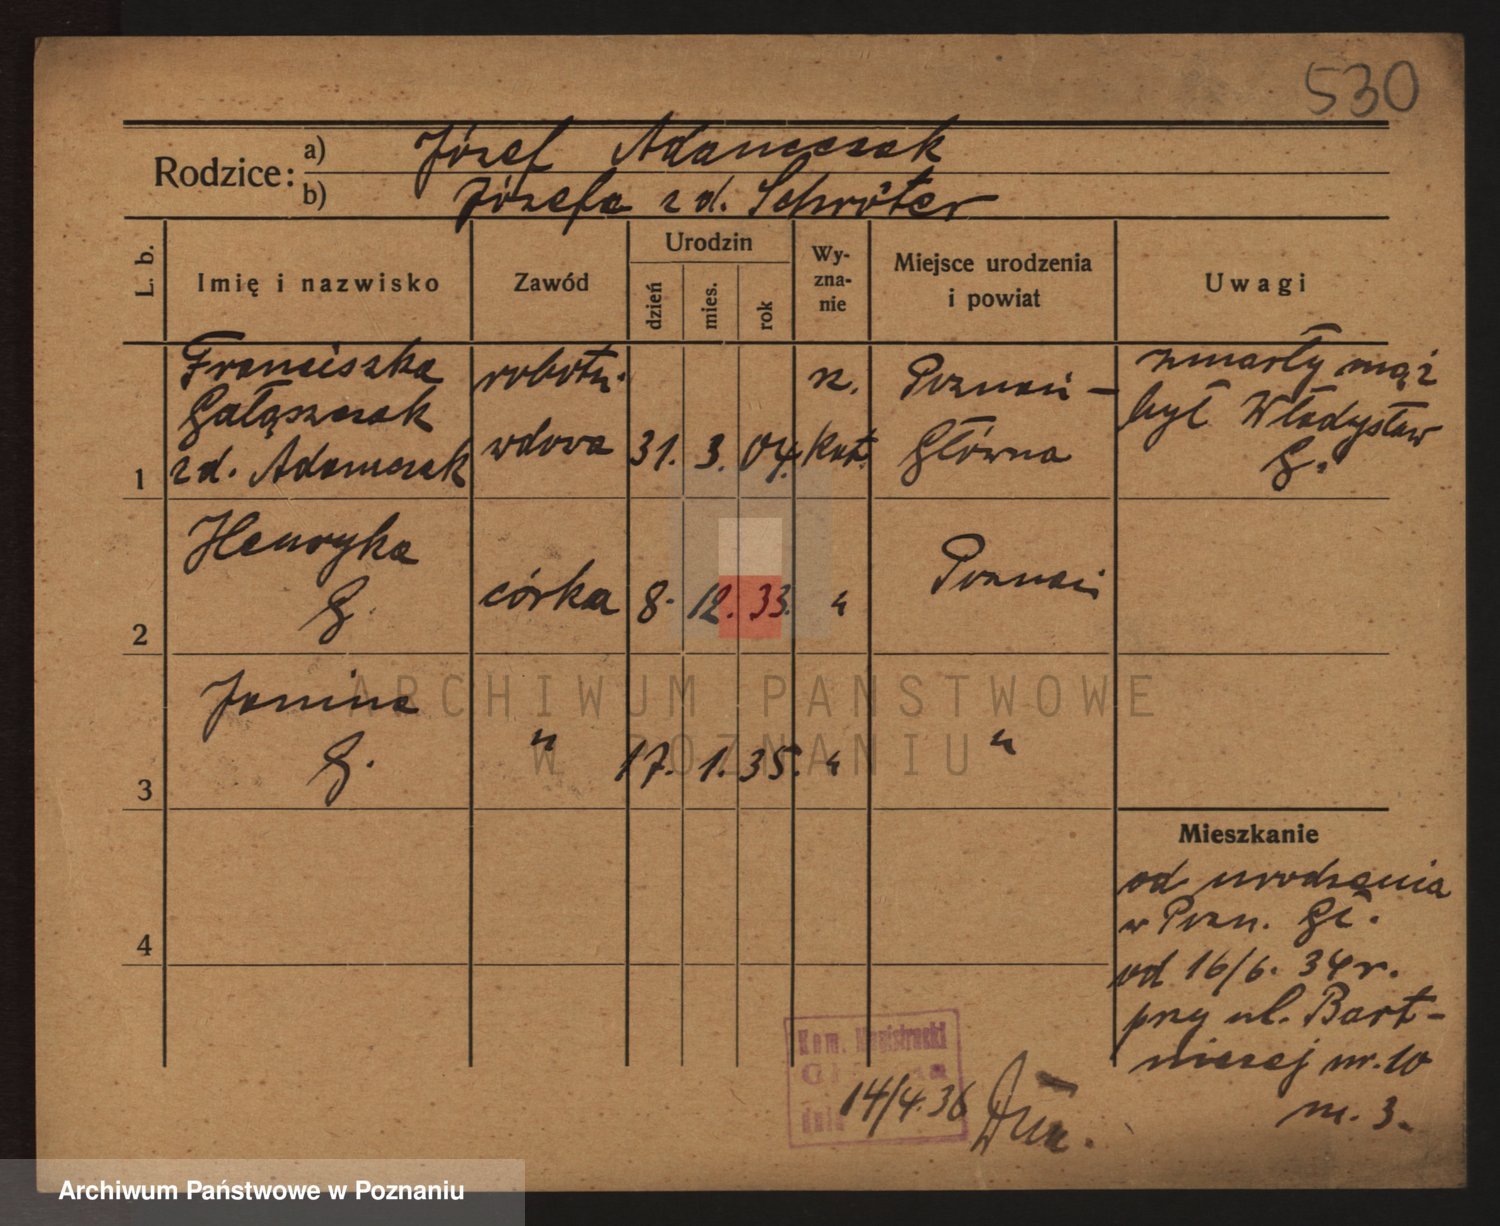 530
Rodzice:
a) Józef Adamczak
b) Józefa z d. Schröter
L. b.
Imię i nazwisko
Zawód
Urodzin
dzień
mies.
rok
Wy-
zna-
nie
Miejsce urodzenia
i powiat
Uwagi
Franciszka
Gałązczak
z d. Adamczak
robotn.
wdowa
31. 3. 04.
rz.
kat.
Poznań –
Główna
zmarły mąż
był Władysław
G.
1
Henryka
G.
córka
8. 12. 33.
"
Poznań
2
Janina
G.
"
17. 1. 35.
"
"
3
4
Mieszkanie
od urodzenia
w Pozn. Gł.
od 16/6. 34 r.
przy ul. Bart-
niczej nr. 10
m. 3.
Kom. Magistracki
Główna
dnia 14/4. 36
ARCHIWUM PAŃSTWOWE
W POZNANIU
Archiwum Państwowe w Poznaniu